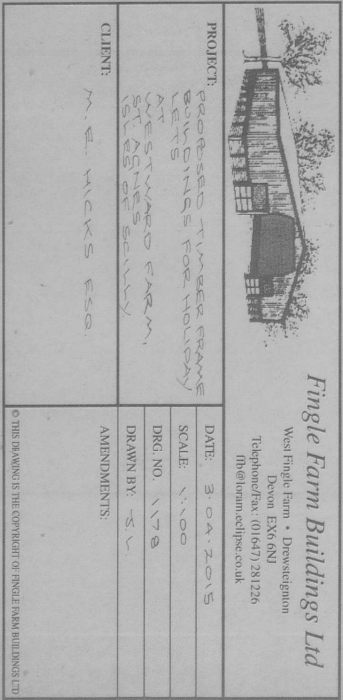 Fingle Farm Buildings Ltd
West Fingle Farm • Drewsteignton
Devon EX6 6NJ
Telephone/Fax: (01647) 281226
ffb@loram.eclipse.co.uk
PROJECT: PROPOSED TIMBER FRAME
BUILDINGS FOR HOLIDAY
LETS
AT
WESTWARD FARM,
ST. AGNES
ISLES OF SCILLY
CLIENT:
M. E. HICKS ESQ.
DATE: 3.04.2015
SCALE: 1:100
DRG. NO. 1178
DRAWN BY: S L
AMENDMENTS:
© THIS DRAWING IS THE COPYRIGHT OF FINGLE FARM BUILDINGS LTD